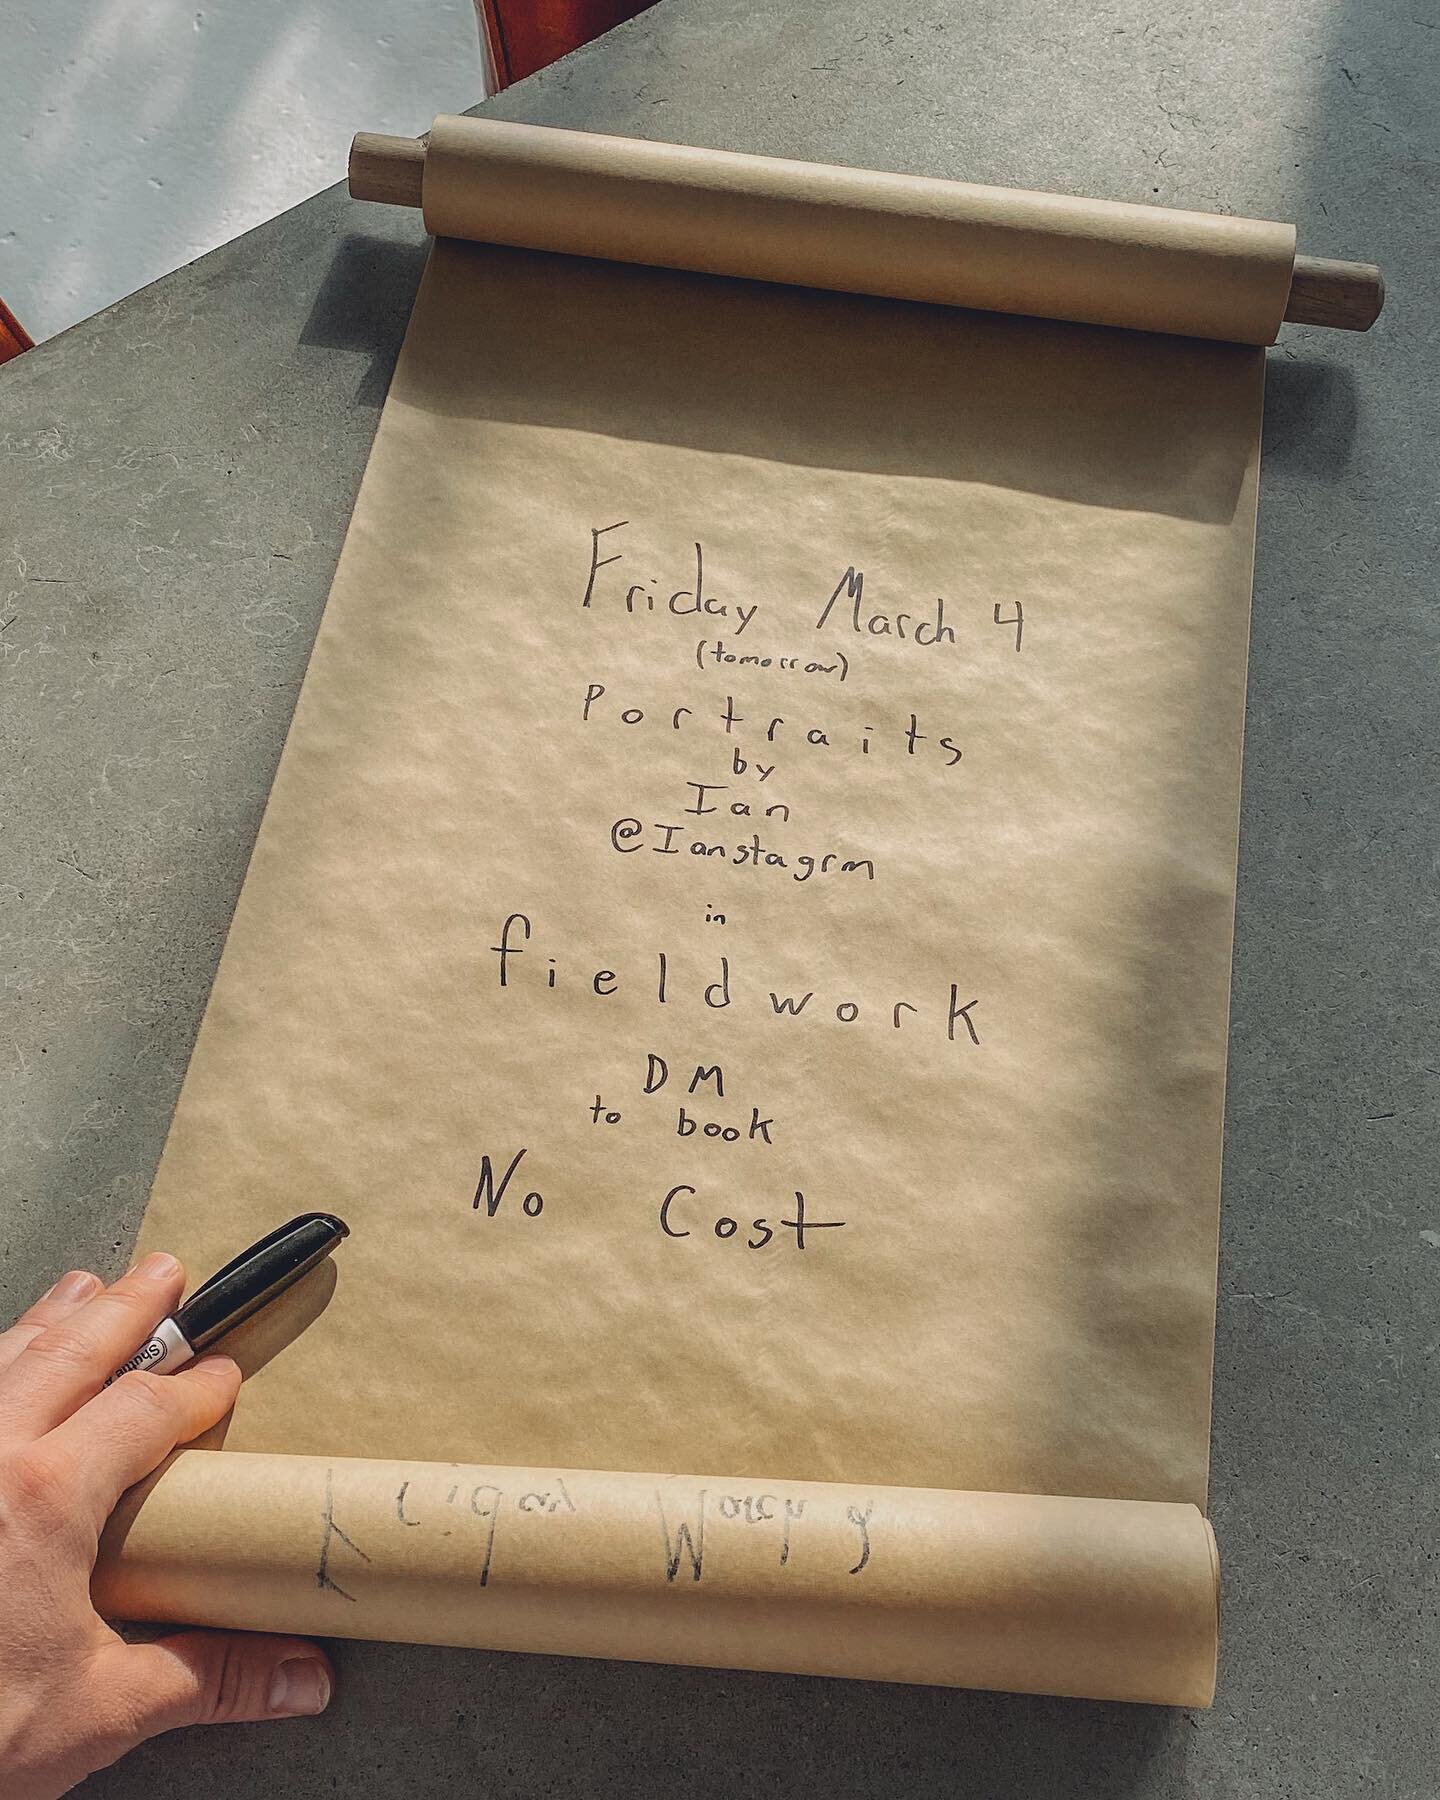 Friday March 4
(tomorrow)
Portraits
by
Ian
@Ianstagrm
in
fieldwork
DM
to book
No Cost
Friday March